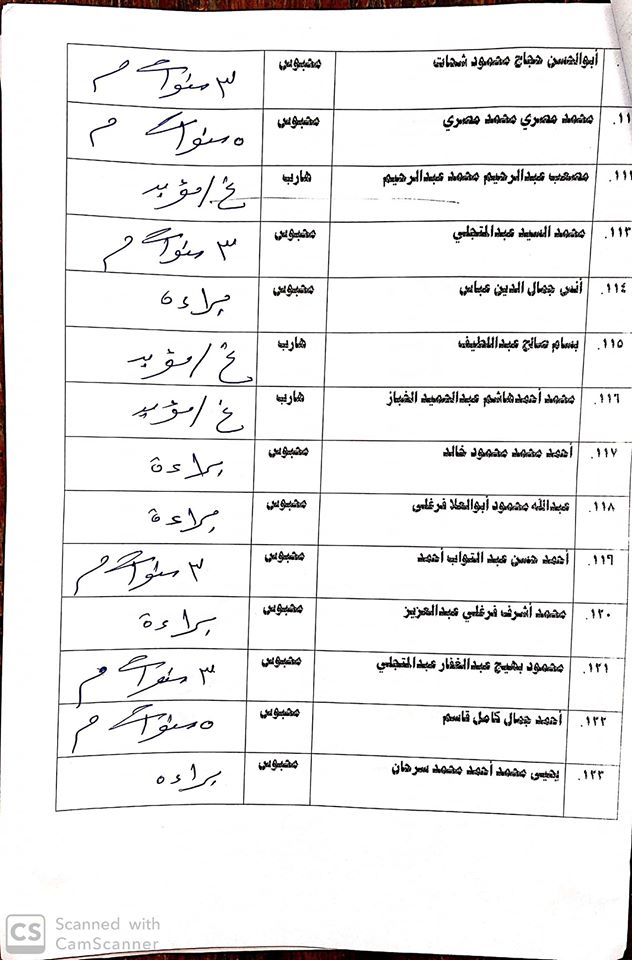 أبوالحسن حجاج محمود شحات محبوس ٣ سنوات م
١١. محمد مصري محمد مصري محبوس ٥ سنوات م
١١٢. مصعب عبدالرحيم محمد عبدالرحيم هارب غ/مؤبد
١١٣. محمد السيد عبدالمتجلي محبوس ٣ سنوات م
١١٤. أنس جمال الدين عباس محبوس براءة
١١٥. بسام صالح عبداللطيف هارب غ/مؤبد
١١٦. محمد أحمدهاشم عبدالحميد الخباز هارب غ/مؤبد
١١٧. أحمد محمد محمود خالد محبوس براءة
١١٨. عبدالله محمود أبوالعلا فرغلى محبوس براءة
١١٩. أحمد حسن عبد التواب أحمد محبوس ٣ سنوات م
١٢٠. محمد أشرف فرغلي عبدالعزيز محبوس براءة
١٢١. محمود بهيج عبدالغفار عبدالمتجلي محبوس ٣ سنوات م
١٢٢. أحمد جمال كامل قاسم محبوس ٥ سنوات م
١٢٣. يحيى محمد أحمد محمد سرحان محبوس براءه
CS Scanned with
CamScanner